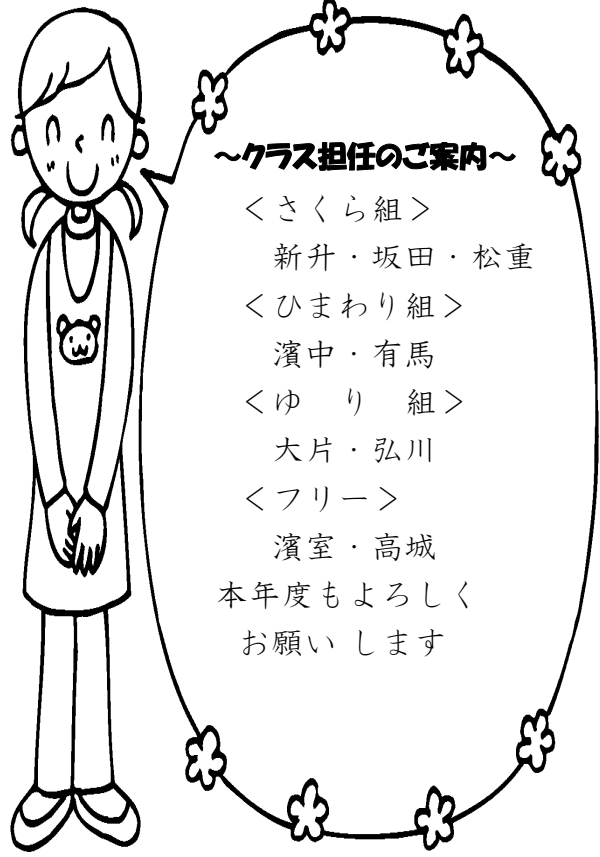 ～クラス担任のご案内～
＜さくら組＞
新升・坂田・松重
＜ひまわり組＞
濱中・有馬
＜ゆ　り　組＞
大片・弘川
＜フリー＞
濱室・高城
本年度もよろしく
お願い します